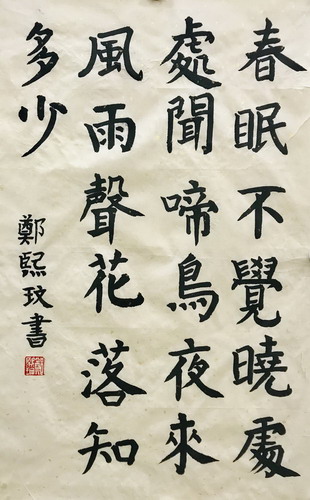 春眠不覺曉處
處聞啼鳥夜來
風雨聲花落知
多少
鄭熙玟書